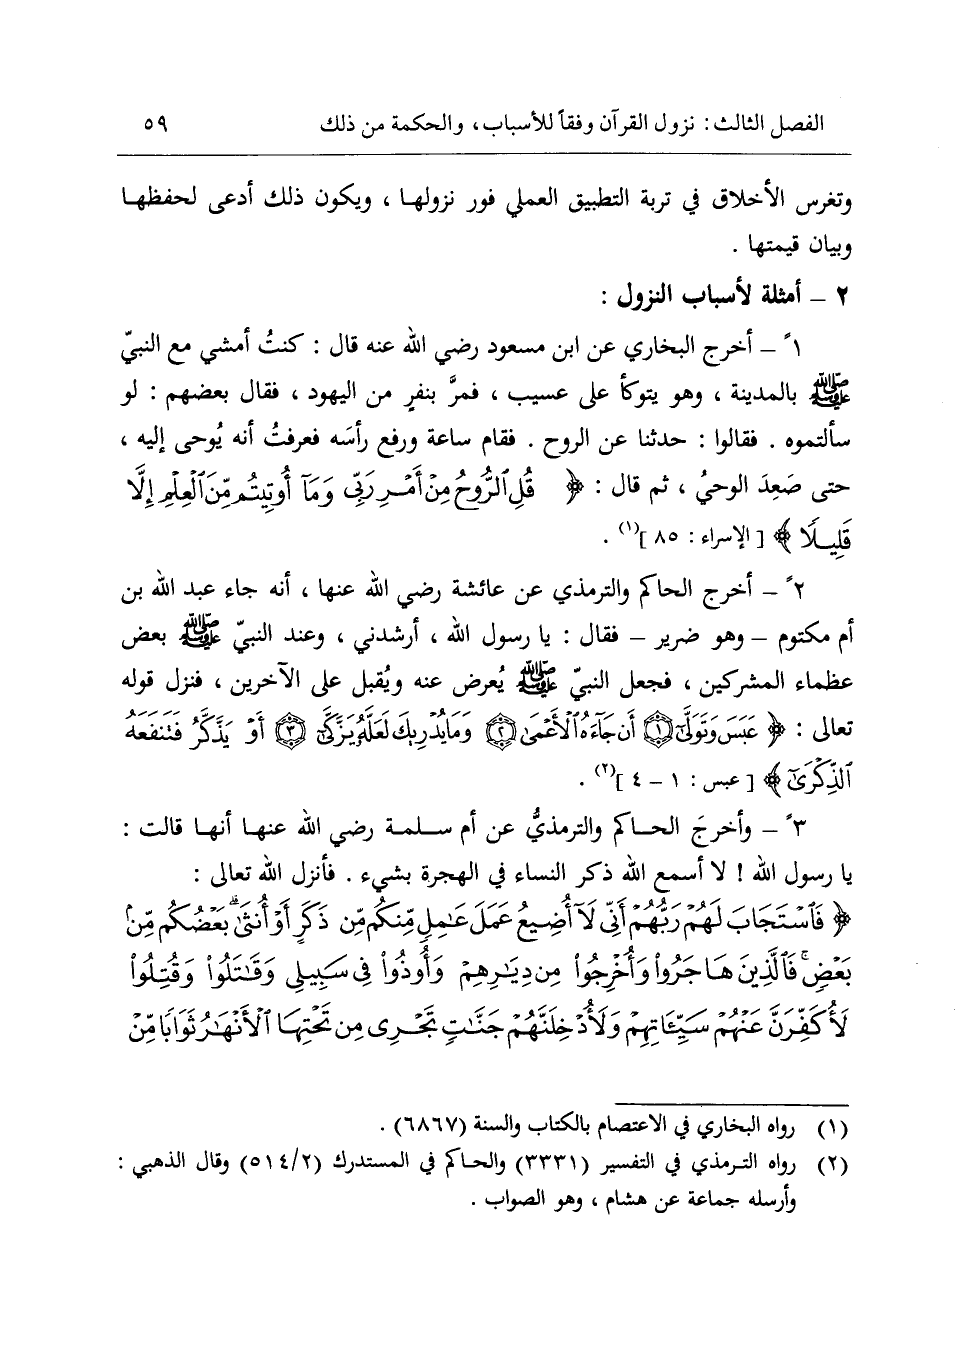 الفصل الثالث: نزول القرآن وفقاً للأسباب، والحكمة من ذلك ٥٩
وتغرس الأخلاق في تربة التطبيق العملي فور نزولها ، ويكون ذلك أدعى لحفظها
وبيان قيمتها .
٢ – أمثلة لأسباب النزول :
١ً – أخرج البخاري عن ابن مسعود رضي الله عنه قال : كنتُ أمشي مع النبيّ
ﷺ بالمدينة ، وهو يتوكأ على عسيب ، فمرَّ بنفرٍ من اليهود ، فقال بعضهم : لو
سألتموه . فقالوا : حدثنا عن الروح . فقام ساعة ورفع رأسَه فعرفتُ أنه يُوحى إليه ،
حتى صَعِدَ الوحيُ ، ثم قال : ﴿ قُلِ ٱلرُّوحُ مِنْ أَمْرِ رَبِّي وَمَآ أُوتِيتُم مِّنَ ٱلْعِلْمِ إِلَّا
قَلِيلًا ﴾ [ الإسراء : ٨٥ ](١) .
٢ً – أخرج الحاكم والترمذي عن عائشة رضي الله عنها ، أنه جاء عبد الله بن
أم مكتوم – وهو ضرير – فقال : يا رسول الله ، أرشدني ، وعند النبيّ ﷺ بعض
عظماء المشركين ، فجعل النبيّ ﷺ يُعرض عنه ويُقبل على الآخرين ، فنزل قوله
تعالى : ﴿ عَبَسَ وَتَوَلَّىٰٓ ﴿١﴾ أَن جَآءَهُ ٱلْأَعْمَىٰ ﴿٢﴾ وَمَا يُدْرِيكَ لَعَلَّهُۥ يَزَّكَّىٰٓ ﴿٣﴾ أَوْ يَذَّكَّرُ فَتَنفَعَهُ
ٱلذِّكْرَىٰٓ ﴾ [ عبس : ١ – ٤ ](٢) .
٣ً – وأخرجَ الحاكم والترمذيُّ عن أم سلمة رضي الله عنها أنها قالت :
يا رسول الله ! لا أسمع الله ذكر النساء في الهجرة بشيء . فأنزل الله تعالى :
﴿ فَٱسْتَجَابَ لَهُمْ رَبُّهُمْ أَنِّي لَآ أُضِيعُ عَمَلَ عَٰمِلٍ مِّنكُم مِّن ذَكَرٍ أَوْ أُنثَىٰۖ بَعْضُكُم مِّنۢ
بَعْضٍۖ فَٱلَّذِينَ هَاجَرُوا۟ وَأُخْرِجُوا۟ مِن دِيَٰرِهِمْ وَأُوذُوا۟ فِي سَبِيلِي وَقَٰتَلُوا۟ وَقُتِلُوا۟
لَأُكَفِّرَنَّ عَنْهُمْ سَيِّـَٔاتِهِمْ وَلَأُدْخِلَنَّهُمْ جَنَّٰتٍ تَجْرِي مِن تَحْتِهَا ٱلْأَنْهَٰرُ ثَوَابًا مِّنْ
(١) رواه البخاري في الاعتصام بالكتاب والسنة (٦٨٦٧) .
(٢) رواه الترمذي في التفسير (٣٣٣١) والحاكم في المستدرك (٥١٤/٢) وقال الذهبي :
وأرسله جماعة عن هشام ، وهو الصواب .